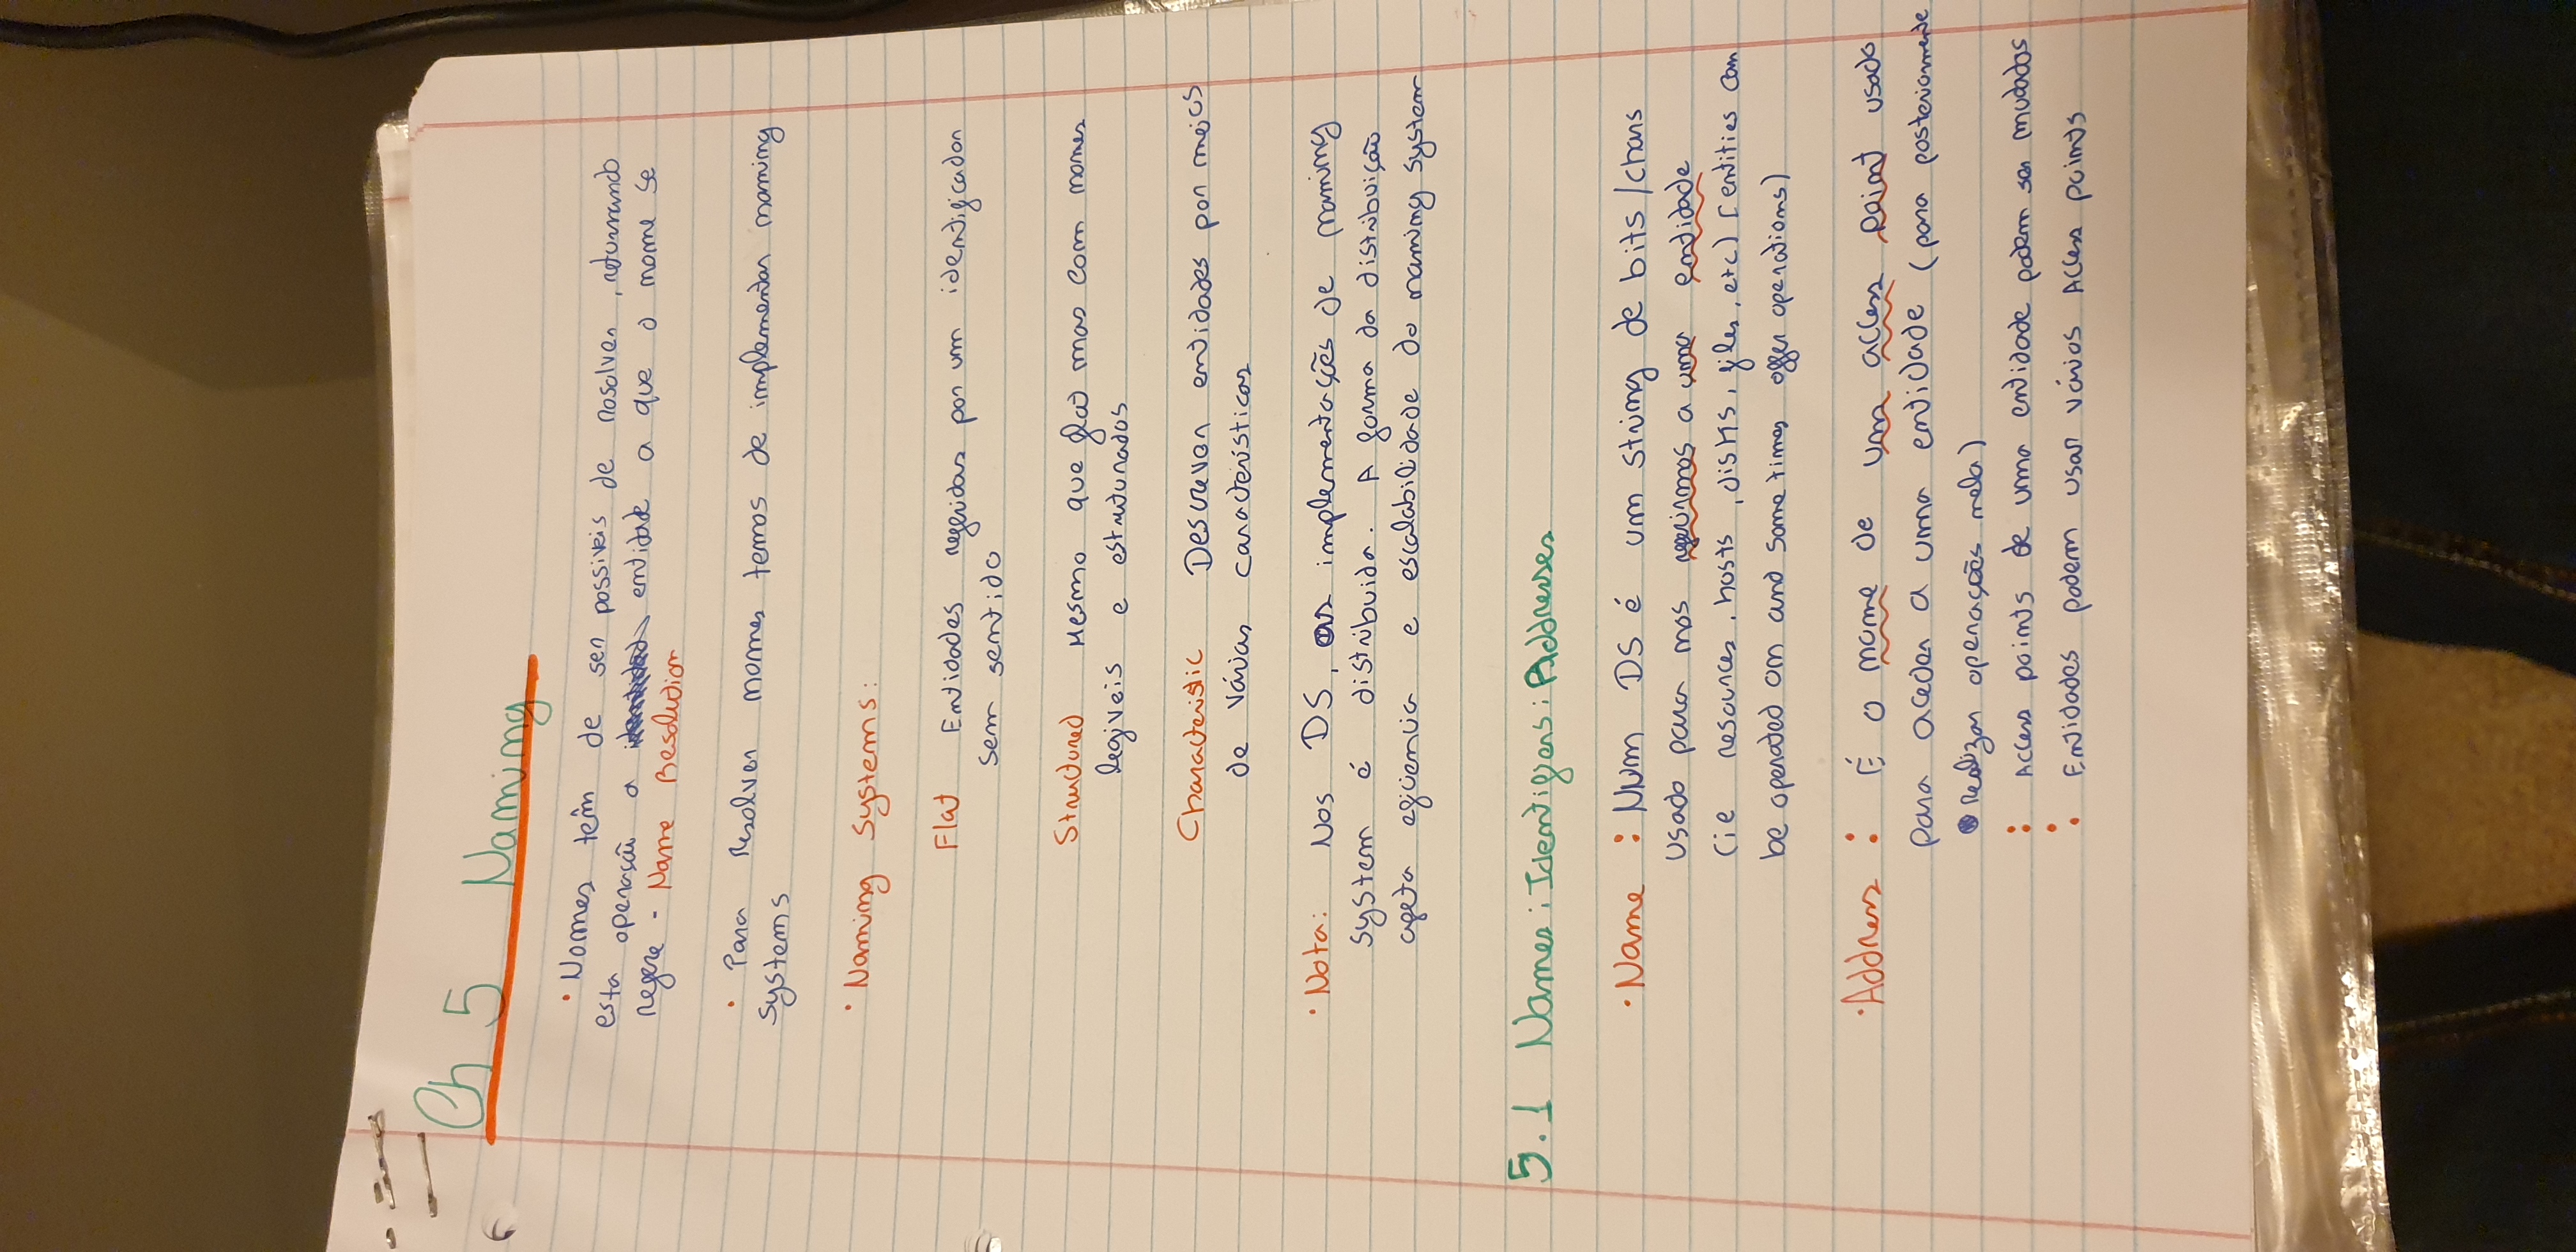 Ch 5 Naming
• Nomes têm de ser possiveis de resolver, returnando
esta operação a entidade a que o nome se
refere - Name Resolution
• Para resolver nomes temos de implementar naming
systems
• Naming Systems:
Flat Entidades referidas por um identificador
sem sentido
Structured Mesmo que flat mas com nomes
legiveis e estruturados
Characteristic Descrever entidades por meios
de várias características
• Nota: Nos DS, as implementações de naming
system é distribuida. A forma da distribuição
afeta eficiencia e escalabilidade do naming system
5.1 Names; Identifiers; Addresses
• Name : Num DS é um string de bits/chars
usado para nos referirmos a uma entidade
(ie resources, hosts, disks, files, etc) [entities can
be operated on and sometimes offer operations)
• Address : É o nome de um access point usado
para aceder a uma entidade (para posteriormente
realizar operações nela)
: Access points de uma entidade podem ser mudados
: Entidades podem usar vários Access points